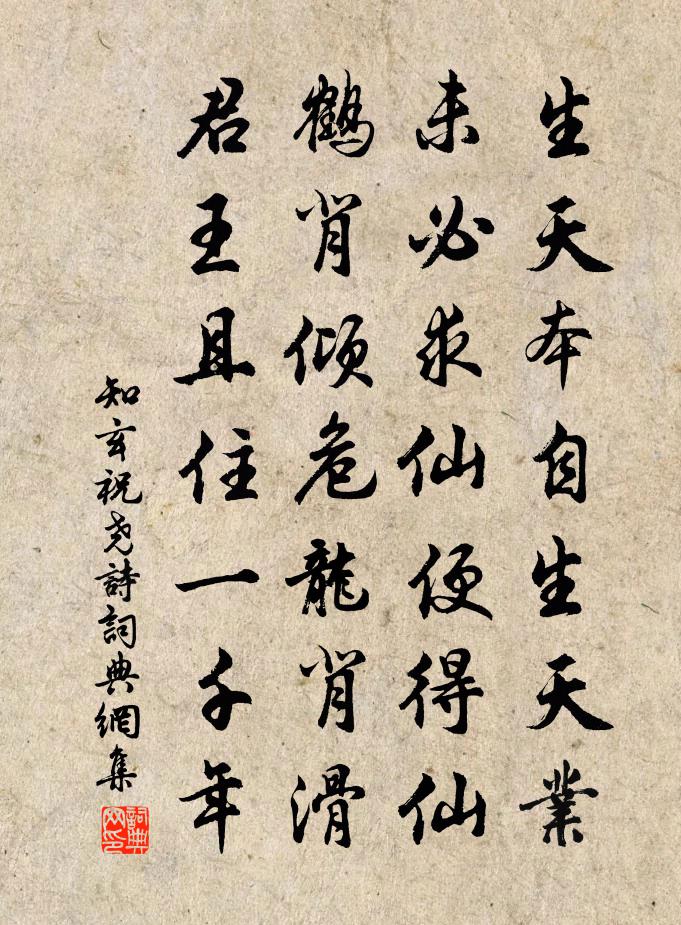 生天本自生天業
未必求仙便得仙
鶴背傾危龍背滑
君王且住一千年
知玄祝尧詩詞典網集
詞典网印